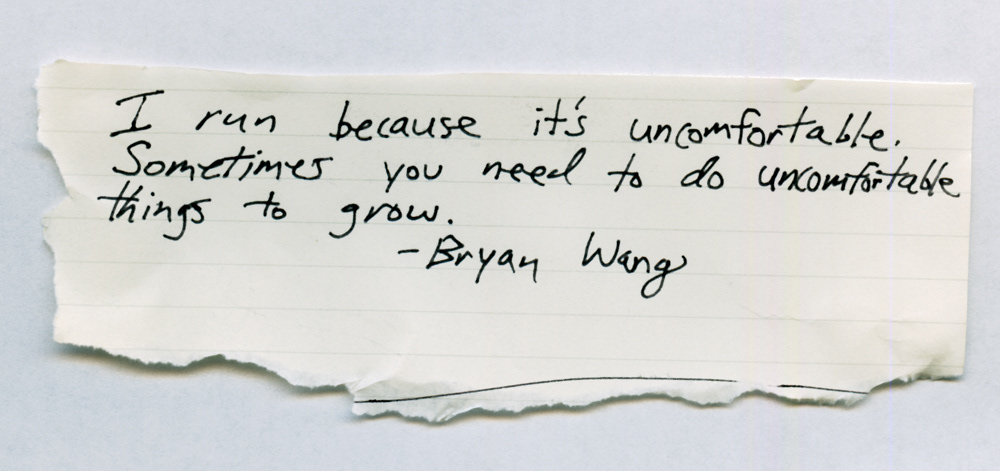 I run because it's uncomfortable.
Sometimes you need to do uncomfortable
things to grow.
-Bryan Wang